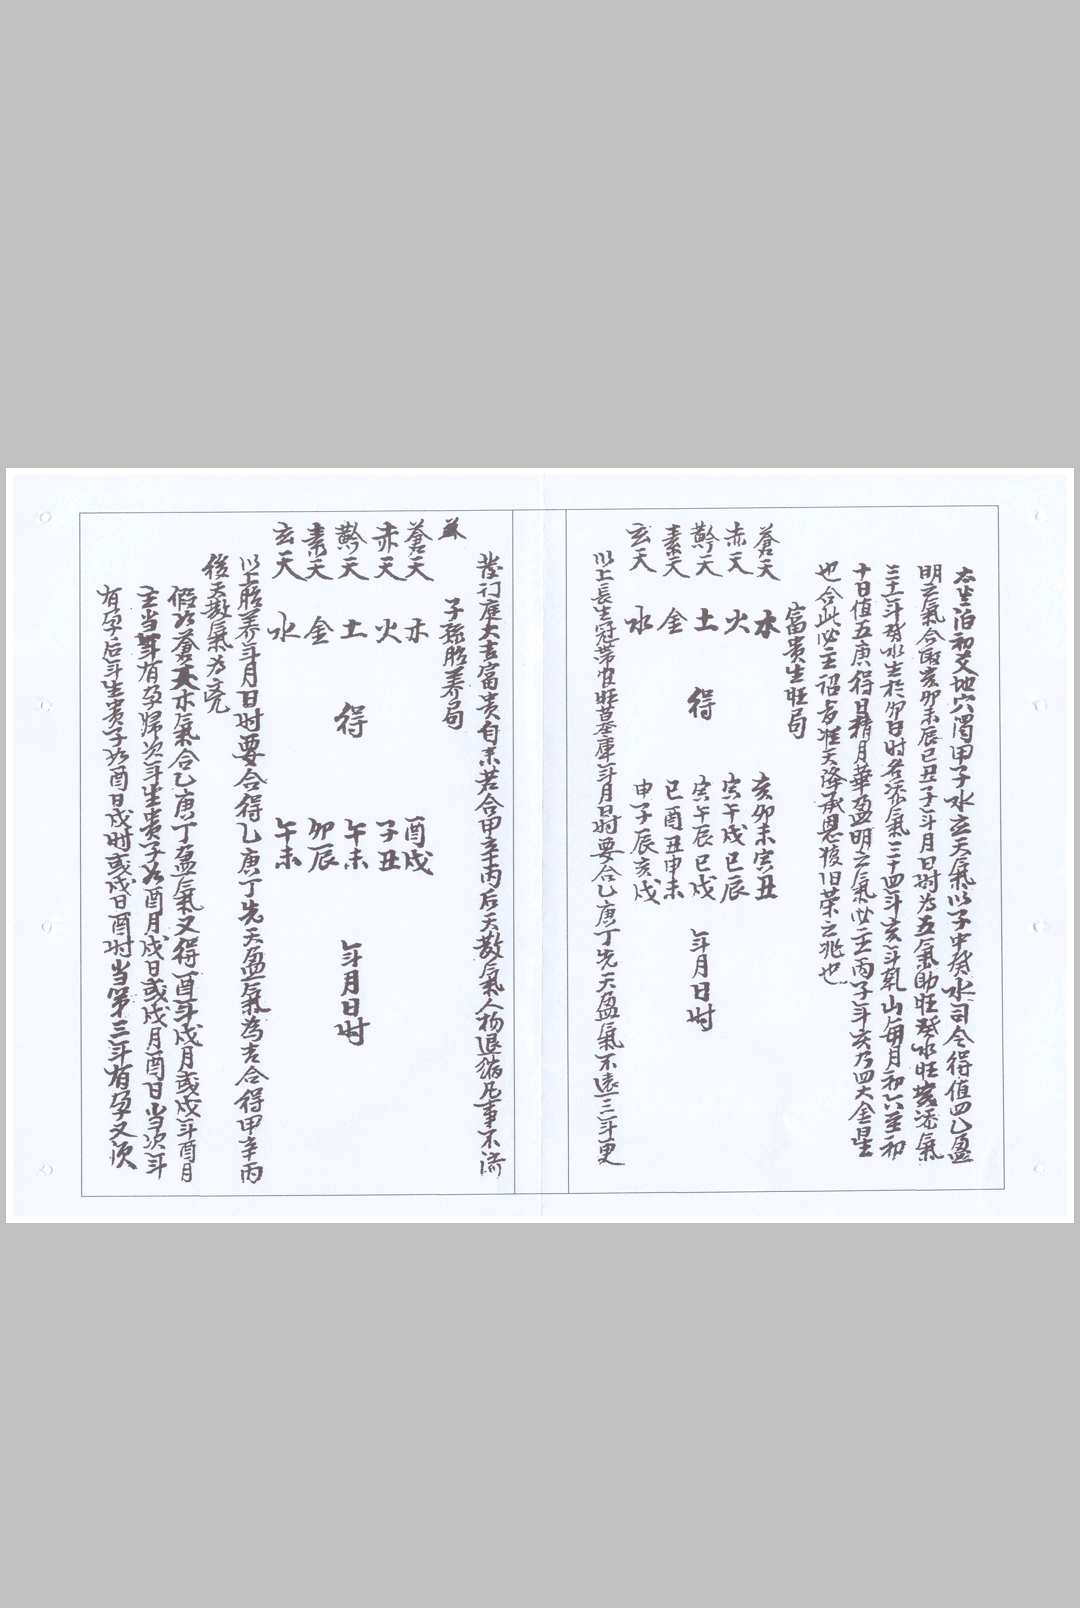 太生泊初爻地穴濁甲子水立天氣以子中癸水司令得值四乙盈
明之氣合取亥卯未辰巳丑子年月日时为五氣助旺癸水旺岁添氣
三十二年癸水生於卯日时各添氣三十四年亥年乾山每月初六至初
十日值五庚得日精月華盈明之氣必主丙子年亥乃四大金星
也合此必主诏 天降承恩復旧荣之兆也
富贵生旺局
蒼天 木 亥卯未寅丑
赤天 火 寅午戌巳辰
黅天 土 得 寅午辰巳戌 年月日时
素天 金 巳酉丑申未
玄天 水 申子辰亥戌
以上長生冠带官旺墓庫年月日时要合乙庚丁先天盈氣不遠三年更
发门庭大吉富贵自来若合甲辛丙后天散氣人物退缩凡事不濟
子孫胎养局
蒼天 木 酉戌
赤天 火 子丑
黅天 土 得 午未 年月日时
素天 金 卯辰
玄天 水 午未
以上胎养年月日时要合得乙庚丁先天盈氣為吉合得甲辛丙
後天散氣为凶
假如蒼天木氣合乙庚丁盈氣又得酉年戌月或戌年酉月
主当年有孕归次年生贵子如酉月戌日或戌月酉日当次年
有孕后年生贵子如酉日戌时或戌日酉时当第三年有孕又次